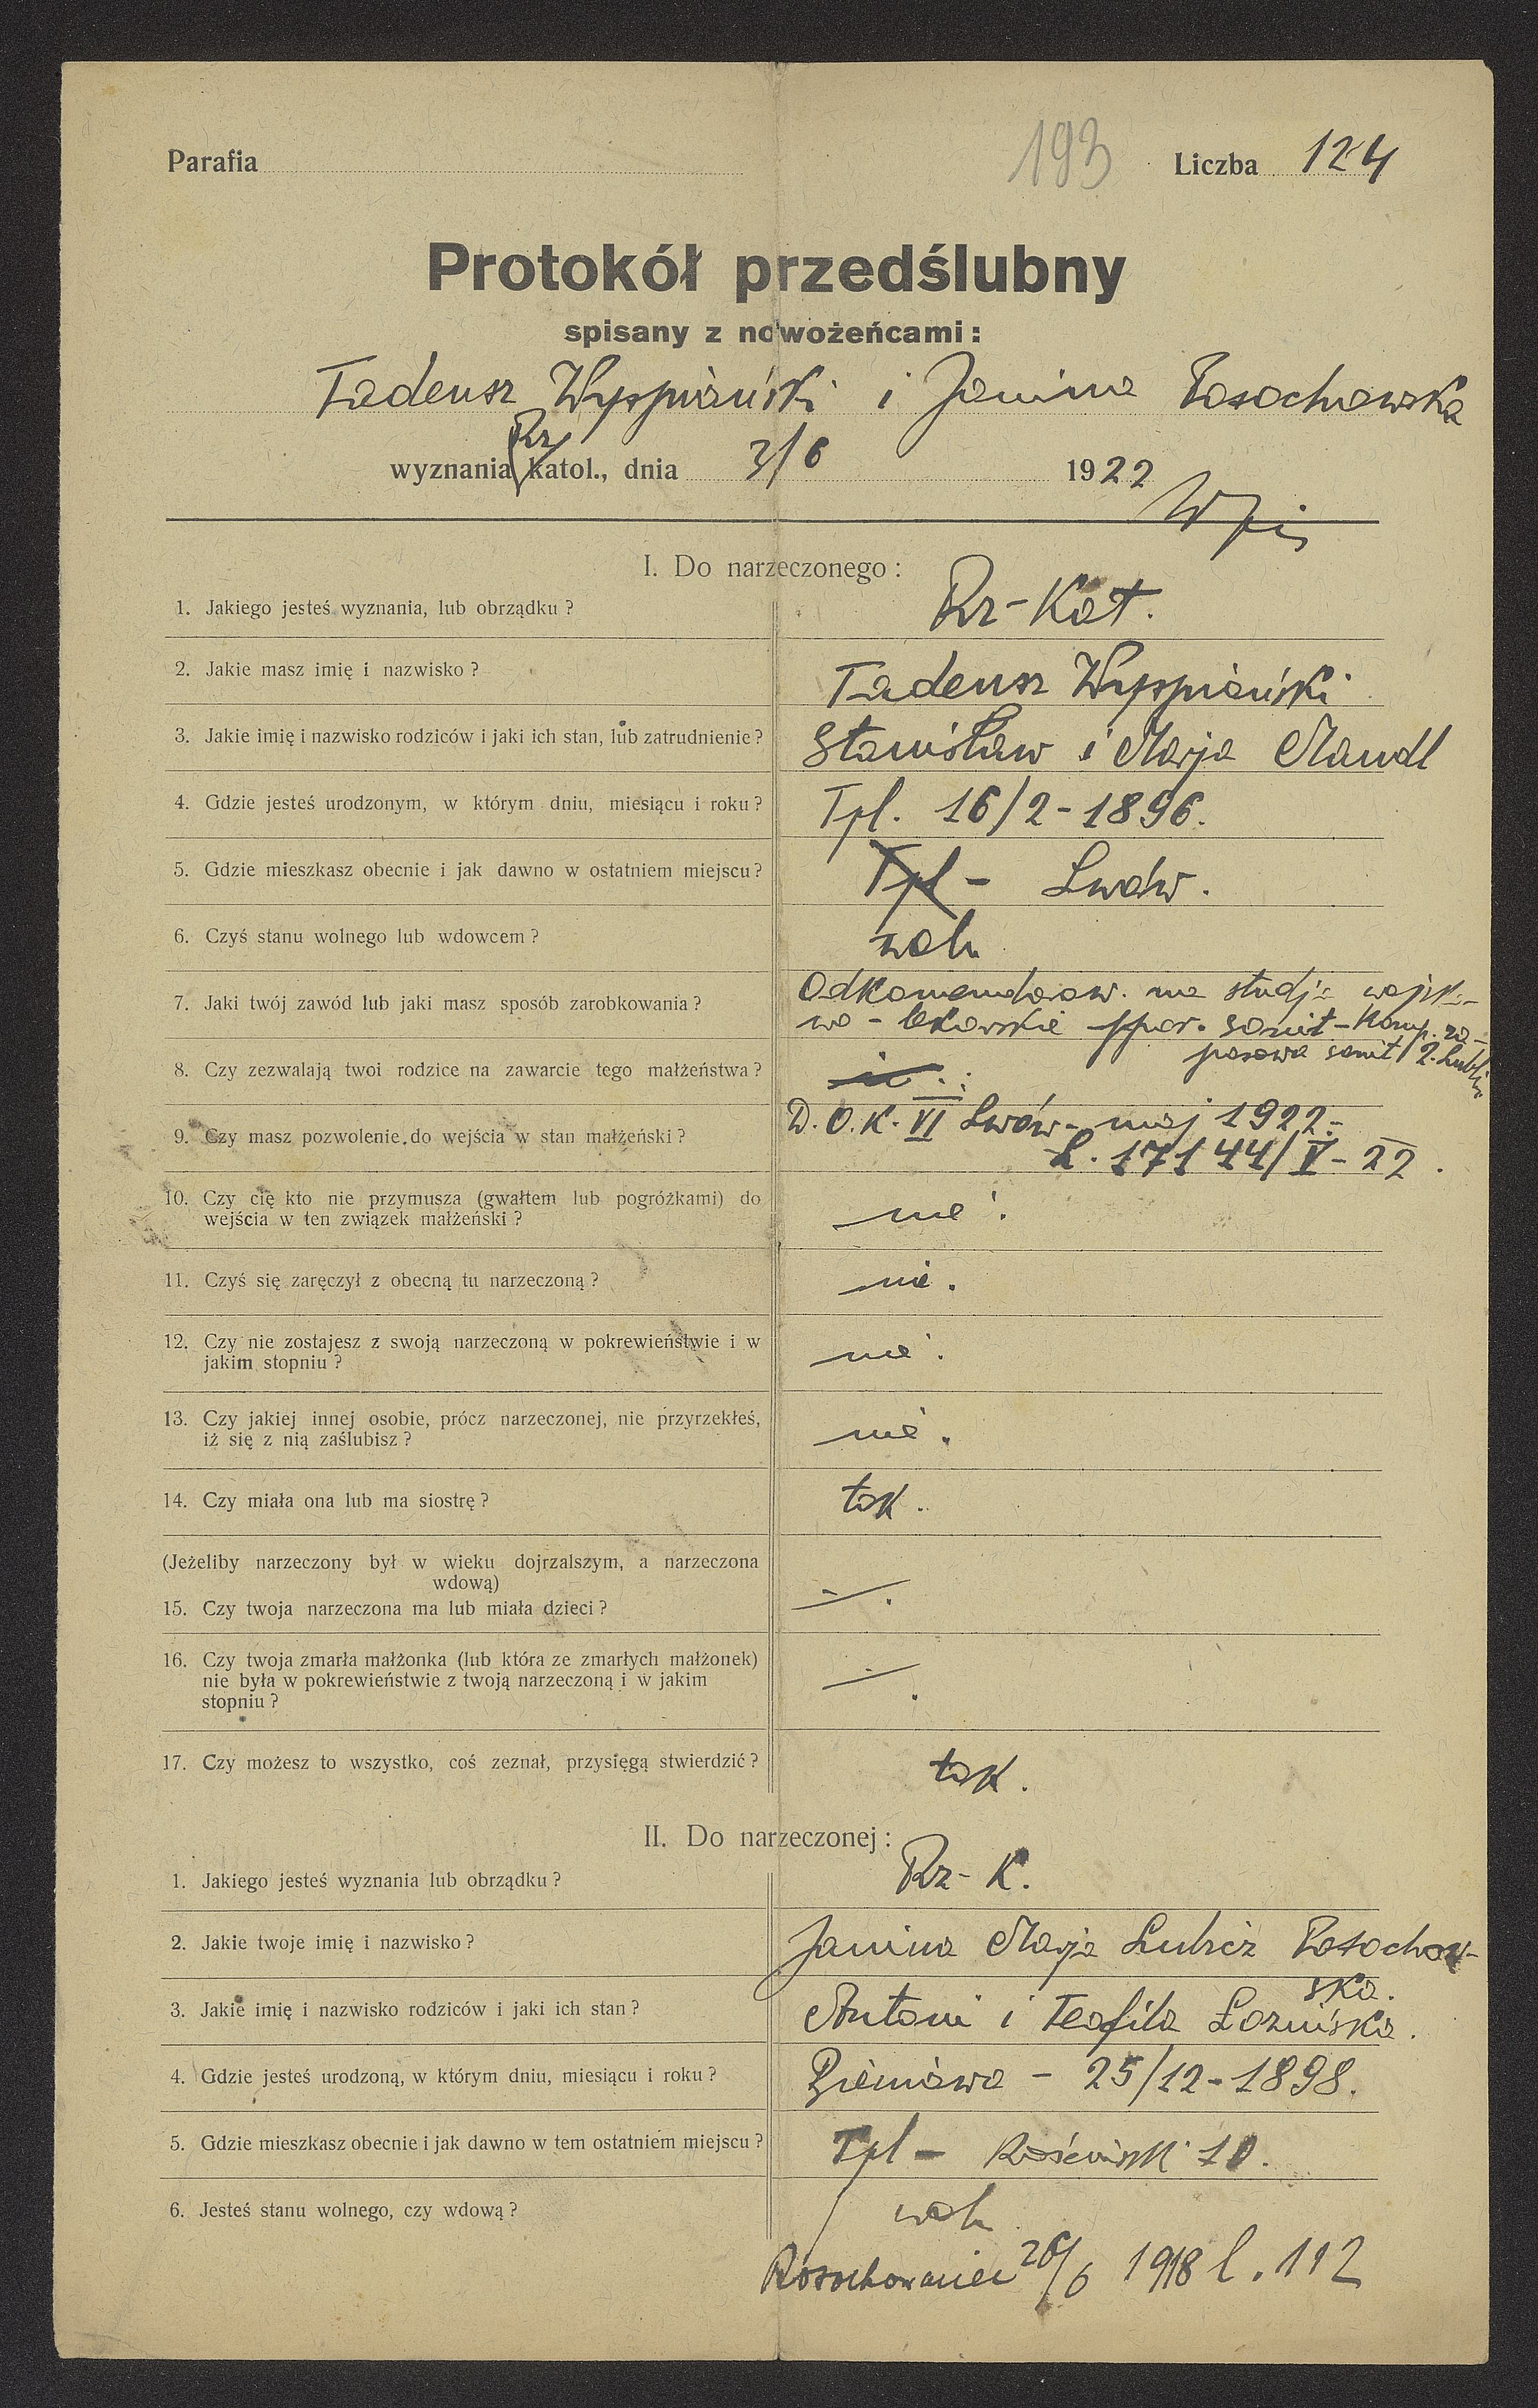 Parafia
193
Liczba 124
Protokół przedślubny
spisany z nowożeńcami:
Tadeusz Wyspiański i Janina Rosochowska
Rz
wyznania katol., dnia 3/6 1922
I. Do narzeczonego:
1. Jakiego jesteś wyznania, lub obrządku?
Rz-Kat.
2. Jakie masz imię i nazwisko?
Tadeusz Wyspiański
3. Jakie imię i nazwisko rodziców i jaki ich stan, lub zatrudnienie?
Stanisław i Marja Mandl
4. Gdzie jesteś urodzonym, w którym dniu, miesiącu i roku?
Tpl. 16/2-1896.
5. Gdzie mieszkasz obecnie i jak dawno w ostatniem miejscu?
Tpl - Lwów.
6. Czyś stanu wolnego lub wdowcem?
woln
7. Jaki twój zawód lub jaki masz sposób zarobkowania?
Odkomenderow. na studja wojsko-
wo-lekarskie ppor. sanit-Komp. za-
pasowa sanit. 2. Lublin
8. Czy zezwalają twoi rodzice na zawarcie tego małżeństwa?
9. Czy masz pozwolenie do wejścia w stan małżeński?
D.O.K. VI Lwów- maj 1922-
L. 17144/V-22.
10. Czy cię kto nie przymusza (gwałtem lub pogróżkami) do
wejścia w ten związek małżeński?
nie.
11. Czyś się zaręczył z obecną tu narzeczoną?
nie.
12. Czy nie zostajesz z swoją narzeczoną w pokrewieństwie i w
jakim stopniu?
nie.
13. Czy jakiej innej osobie, prócz narzeczonej, nie przyrzekłeś,
iż się z nią zaślubisz?
nie.
14. Czy miała ona lub ma siostrę?
tak.
(Jeżeliby narzeczony był w wieku dojrzalszym, a narzeczona
wdową)
15. Czy twoja narzeczona ma lub miała dzieci?
16. Czy twoja zmarła małżonka (lub która ze zmarłych małżonek)
nie była w pokrewieństwie z twoją narzeczoną i w jakim
stopniu?
17. Czy możesz to wszystko, coś zeznał, przysięgą stwierdzić?
tak.
II. Do narzeczonej:
1. Jakiego jesteś wyznania lub obrządku?
Rz-K.
2. Jakie twoje imię i nazwisko?
Janina Marja Lubicz Rosochow-
ska.
3. Jakie imię i nazwisko rodziców i jaki ich stan?
Antoni i Teofila Łozińska.
4. Gdzie jesteś urodzoną, w którym dniu, miesiącu i roku?
Bieniawa - 25/12-1898.
5. Gdzie mieszkasz obecnie i jak dawno w tem ostatniem miejscu?
Tpl - 10.
6. Jesteś stanu wolnego, czy wdową?
woln
Rosochowaciec 26/6 1918 l. 112